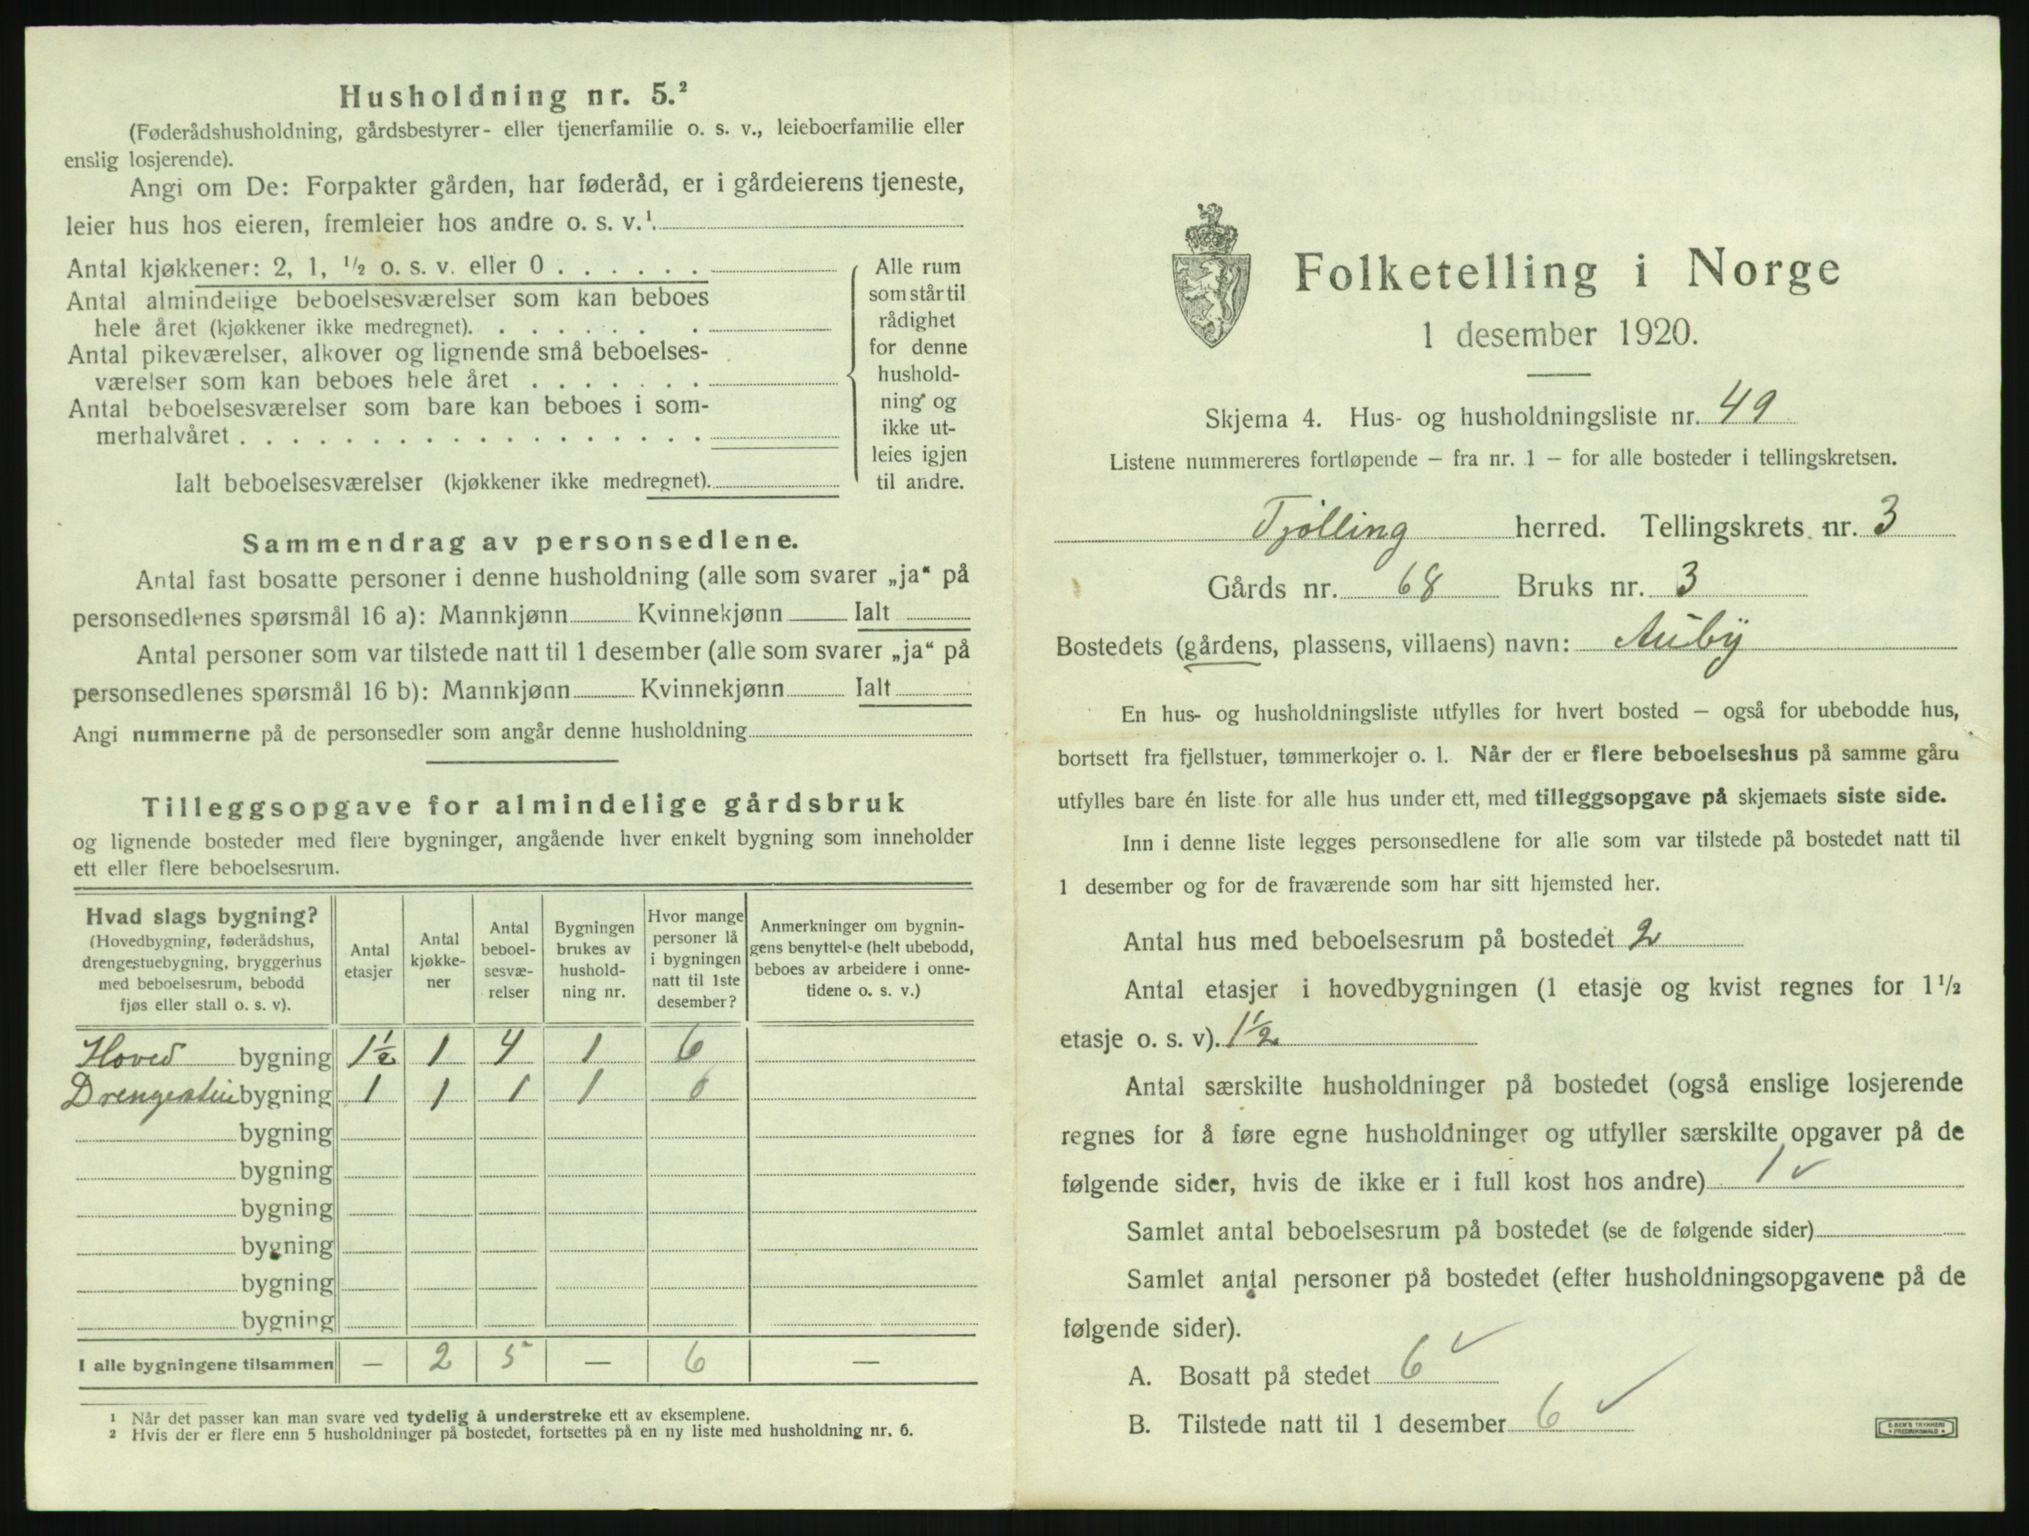 Husholdning nr. 5.²
(Føderådshusholdning, gårdsbestyrer- eller tjenerfamilie o. s. v., leieboerfamilie eller
enslig losjerende).
Angi om De: Forpakter gården, har føderåd, er i gårdeierens tjeneste,
leier hus hos eieren, fremleier hos andre o. s. v.¹
Antal kjøkkener: 2, 1, ½ o. s. v. eller 0 . . . . . .
Antal almindelige beboelsesværelser som kan beboes
hele året (kjøkkener ikke medregnet). . . . . . . .
Antal pikeværelser, alkover og lignende små beboelses-
værelser som kan beboes hele året . . . . . . .
Antal beboelsesværelser som bare kan beboes i som-
merhalvåret . . . . . . . . . . . . . . . . . .
Ialt beboelsesværelser (kjøkkener ikke medregnet).
Alle rum
som står til
rådighet
for denne
hushold-
ning og
ikke ut-
leies igjen
til andre.
Sammendrag av personsedlene.
Antal fast bosatte personer i denne husholdning (alle som svarer „ja“ på
personsedlenes spørsmål 16 a): Mannkjønn Kvinnekjønn Ialt
Antal personer som var tilstede natt til 1 desember (alle som svarer „ja“ på
personsedlenes spørsmål 16 b): Mannkjønn Kvinnekjønn Ialt
Angi nummerne på de personsedler som angår denne husholdning
Tilleggsopgave for almindelige gårdsbruk
og lignende bosteder med flere bygninger, angående hver enkelt bygning som inneholder
ett eller flere beboelsesrum.
Hvad slags bygning?
(Hovedbygning, føderådshus,
drengestuebygning, bryggerhus
med beboelsesrum, bebodd
fjøs eller stall o. s. v).
Antal
etasjer
Antal
kjøkke-
ner
Antal
beboel-
sesvæ-
relser
Bygningen
brukes av
hushold-
ning nr.
Hvor mange
personer lå
i bygningen
natt til 1ste
desember?
Anmerkninger om bygnin-
gens benyttelse (helt ubebodd,
beboes av arbeidere i onne-
tidene o. s. v.)
Hoved bygning 1½ 1 4 1 6
Drengestue bygning 1 1 1 1 0
bygning
bygning
bygning
bygning
bygning
bygning
I alle bygningene tilsammen — 2 5 — 6 —
¹ Når det passer kan man svare ved tydelig å understreke ett av eksemplene.
² Hvis der er flere enn 5 husholdninger på bostedet, fortsettes på en ny liste med husholdning nr. 6.
Folketelling i Norge
1 desember 1920.
Skjema 4. Hus- og husholdningsliste nr. 49
Listene nummereres fortløpende – fra nr. 1 – for alle bosteder i tellingskretsen.
Tjølling herred. Tellingskrets nr. 3
Gårds nr. 68 Bruks nr. 3
Bostedets (gårdens, plassens, villaens) navn: Auby
En hus- og husholdningsliste utfylles for hvert bosted – også for ubebodde hus,
bortsett fra fjellstuer, tømmerkojer o. l. Når der er flere beboelseshus på samme gård
utfylles bare én liste for alle hus under ett, med tilleggsopgave på skjemaets siste side.
Inn i denne liste legges personsedlene for alle som var tilstede på bostedet natt til
1 desember og for de fraværende som har sitt hjemsted her.
Antal hus med beboelsesrum på bostedet 2
Antal etasjer i hovedbygningen (1 etasje og kvist regnes for 1½
etasje o. s. v). 1½
Antal særskilte husholdninger på bostedet (også enslige losjerende
regnes for å føre egne husholdninger og utfyller særskilte opgaver på de
følgende sider, hvis de ikke er i full kost hos andre) 1 ✓
Samlet antal beboelsesrum på bostedet (se de følgende sider)
Samlet antal personer på bostedet (efter husholdningsopgavene på de
følgende sider).
A. Bosatt på stedet 6 ✓
B. Tilstede natt til 1 desember 6 ✓